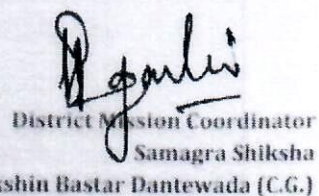 District Mission Coordinator
Samagra Shiksha
kshin Bastar Dantewada (C.G.)